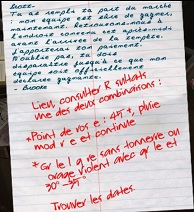 Note:
Tu as rempli ta part du marché
: mon équipe est sûre de gagner,
maintenant. Retrouvons-nous à
l'endroit convenu cet après-midi
avant l'arrivée de la tempête.
J'apporterai ton paiement.
N'oublie pas, tu dois
disparaître jusqu'à ce que mon
équipe soit officiellement
déclarée gagnante.
- Brooke
Lieu, consulter R sultats
une des deux combinaisons:
• Point de ros e: 45°+, pluie
mod r e et continue
* Gr le l g re sans tonnerre ou
orage violent avec gr le et
30°-
Trouver les dates.